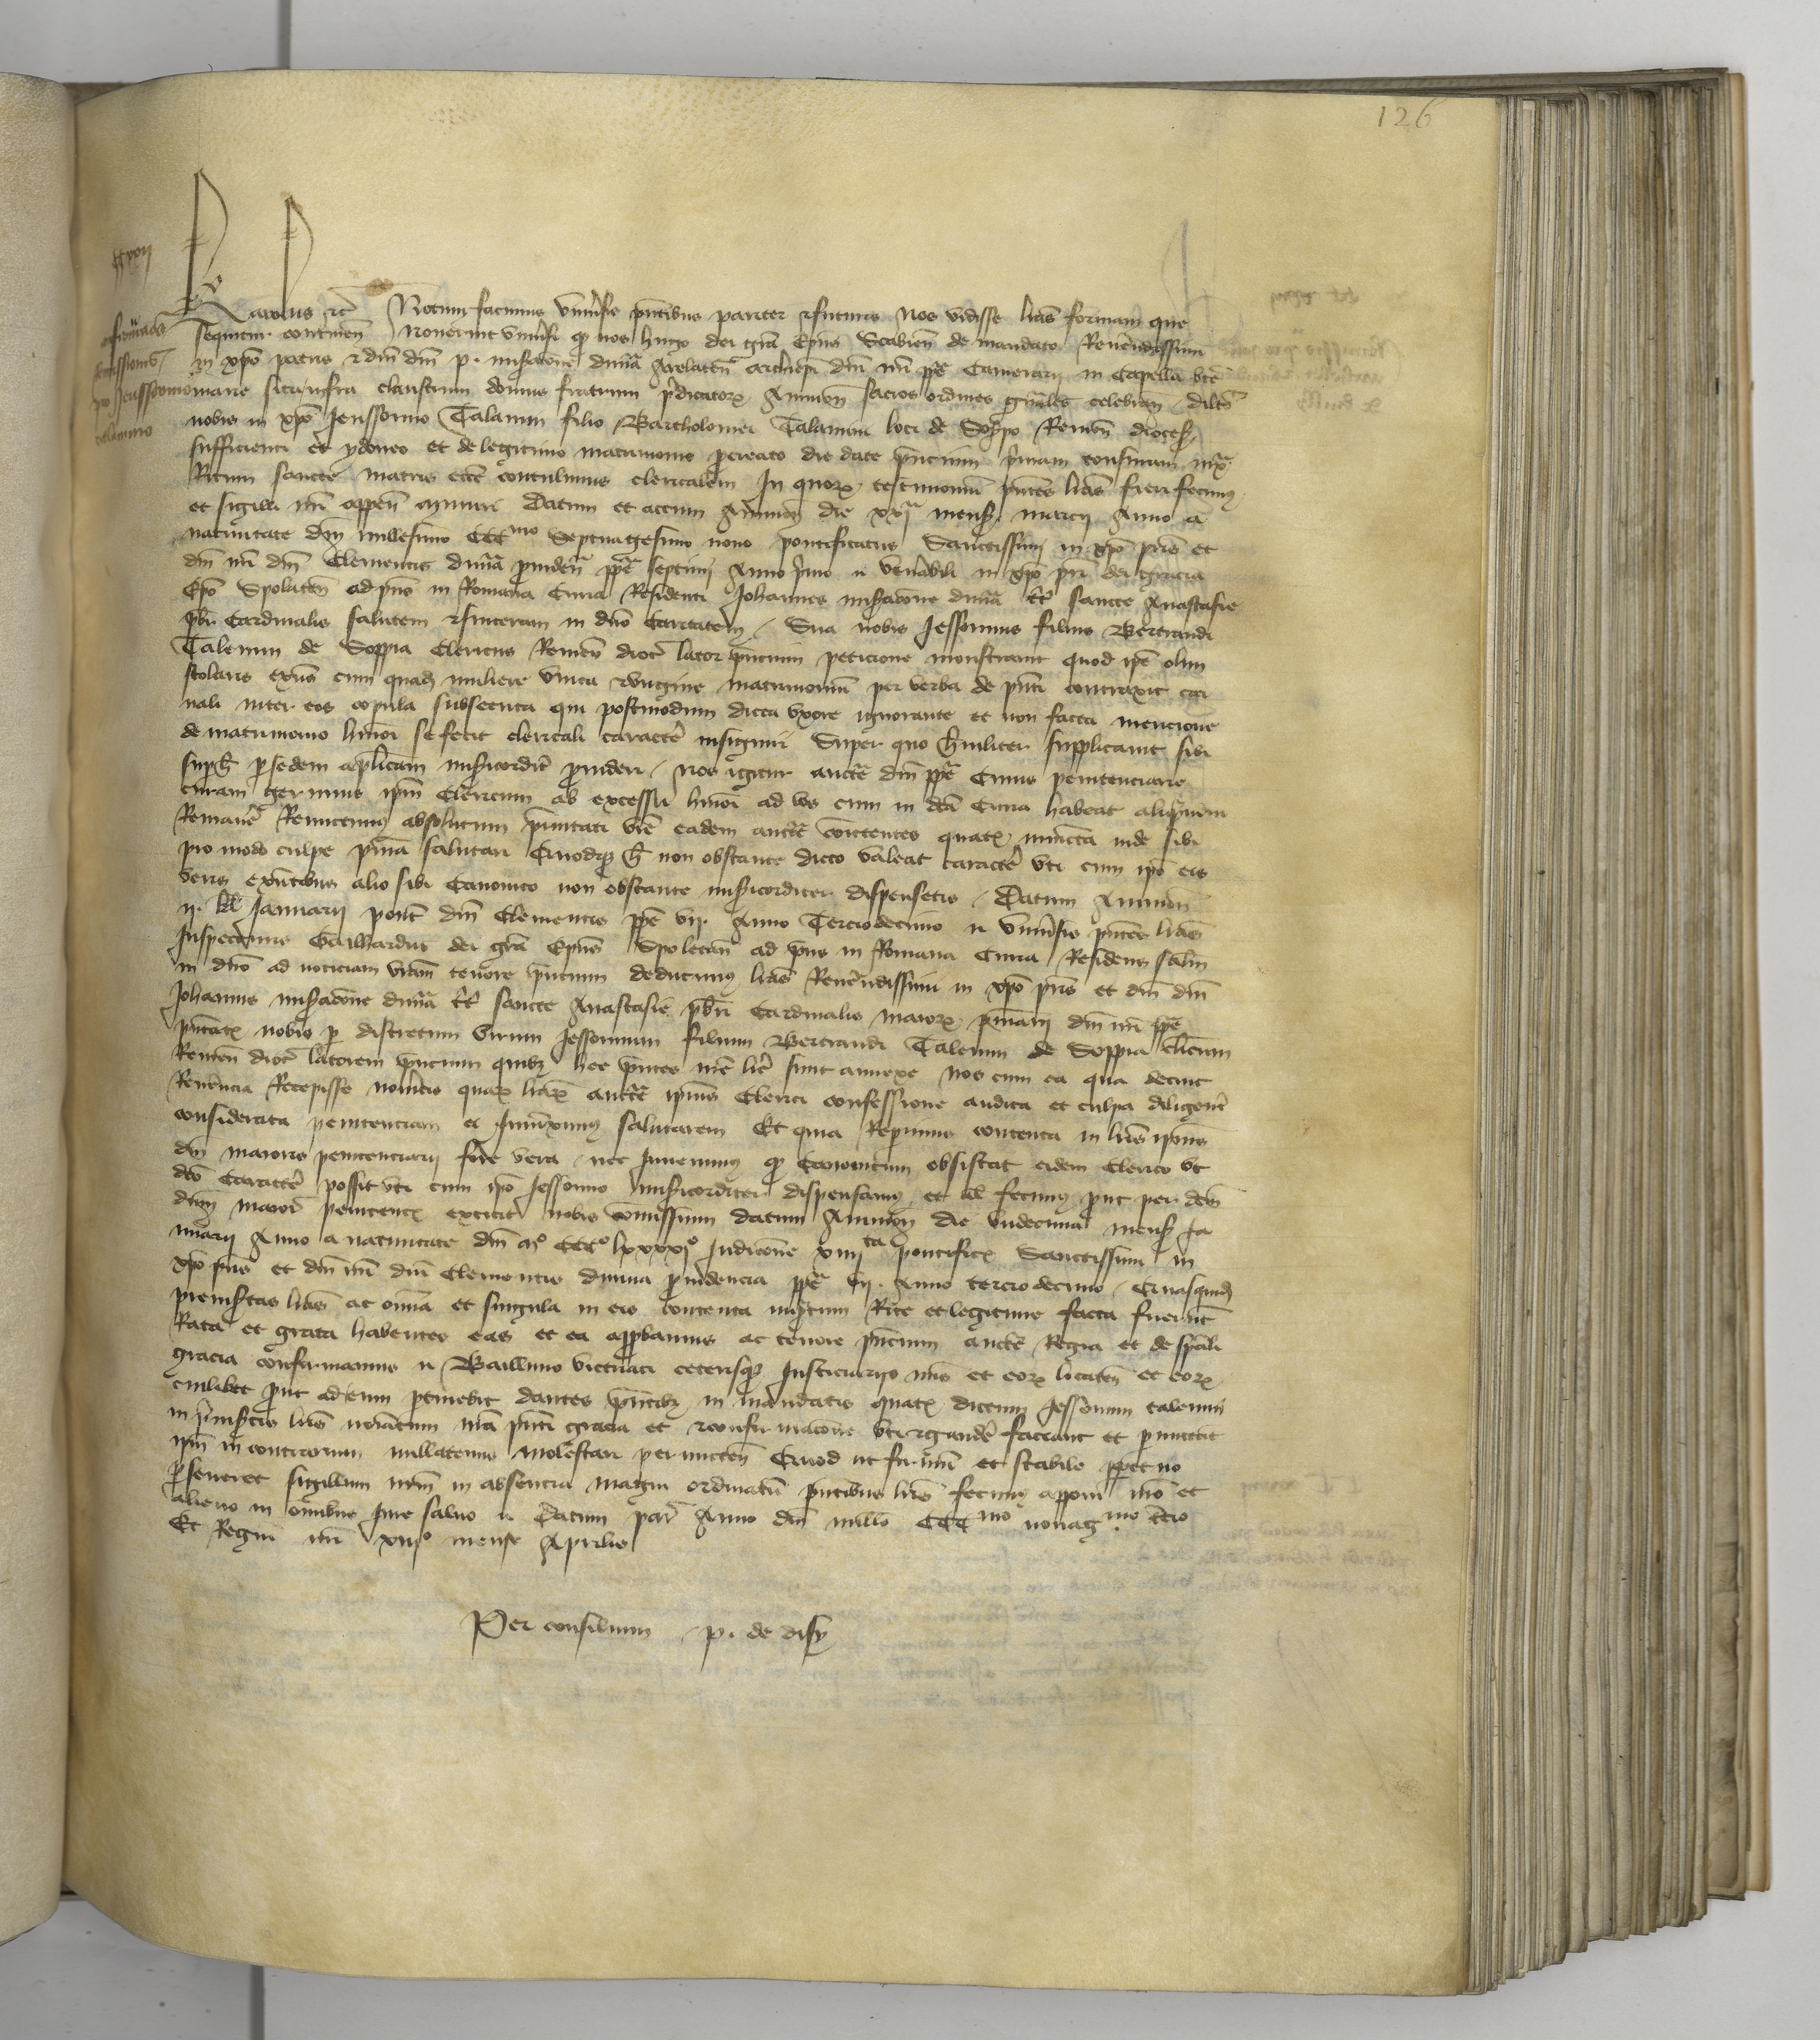 126
Karolus etc Notum facimus universis presentibus pariter et futuris Nos vidisse litteras formam que
sequitur continentes Noverint universi quod nos hugo dei gratia Episcopus de mandato Reverendissimi
in xpo patris et domini domini p. miseratione divina Arelatensis archiepiscopi domini nostri pape Camerarii in Capella beate
marie sita infra claustrum domus fratrum predicatorum Avinion sacros ordines generales celebrantes dilecto
nobis in xpo Jenssonio Talanini filio Bartholomei Talanini loci de Soppo Remensis diocesis
sufficienti et ydoneo et de legitimo matrimonio procreato die date presentium primam tonsuram iuxta
Ritum sancte matris ecclesie contulimus clericalem In quorum testimonium presentes litteras fieri fecimus
et sigilli nostri appensione muniri Datum et actum Avinion die xxja mensis marcii Anno a
nativitate domini millesimo CCCmo Septuagesimo nono pontificatus Sanctissimi in xpo patris et
domini nostri domini Clementis divina providentia pape septimi Anno primo Venerabili in xpo patri dei gracia
Episcopo Spoletan ad presens in Romana Curia Residenti Johannes miseratione divina tituli sancte Anastasie
presbiter Cardinalis salutem et sinceram in domino Caritatem Sua nobis Jessonius filius Bertrandi
Talenini de Soppia Clericus Remensis diocesis lator presentium peticione monstravit quod ipse olim
scolaris existens cum quadam muliere unica et virgine matrimonium per verba de presenti contraxit car
nali inter eos copula subsecuta qui postmodum dicta uxore ignorante et non facta mencione
de matrimonio huiusmodi se fecit clericali caractere insigniri Super quo humiliter supplicavit sibi
super hoc per sedem apostolicam misericorditer provideri Nos igitur auctoritate domini pape Cuius penitenciarie
curam gerimus ipsum Clericum ab excessu huiusmodi ad vos cum in dicta Curia habeat aliquantum
Remanere Remittimus absolutum paternitati vestre eadem auctoritate committentes quatenus iniuncta inde sibi
pro modo culpe penitentia salutari Quodque hoc non obstante dicto valeat caractere uti cum ipso eis
veris existentibus alio sibi Canonico non obstante misericorditer dispensetis Datum Avinion
ij. kl Januarii pontificatus domini Clementis pape vij. Anno Terciodecimo Universis presentes litteras
Inspecturis Gailhardus dei gratia Episcopus Spoletan ad presens in Romana Curia Residens salutem
in domino ad noticiam vestram tenore presentium deducimus litteras Reverendissimi in xpo patris et domini domini
Johannis miseratione divina tituli sancte Anastasie presbiteri Cardinalis maioris penitenciarii domini nostri pape
presentatas nobis per discretum virum Jessonium filium Bertrandi Talenini de Soppia clericum
Remensis diocesis latorem presentium quibus hee presentes nostre littere sunt annexe Nos cum ea qua decuit
Reverencia Recepisse noveritis quarum litterarum auctoritate ipsius Clerici confessione audita et culpa diligenter
considerata penitentiam ei Iniunximus salutarem Et quia Reperimus contenta in litteris ipsius
domini maioris penitenciarii fore vera nec Invenimus quod Canonicum obsistat eidem Clerico ut
dicto Caractere possit uti cum ipso Jessonio misericorditer dispensamus et id fecimus prout per dictum
dominum maiorem penitenc extitit nobis commissum datum Avinion die undecima mensis Ja
nuarii Anno a nativitate domini mo CCCo lxxxxjo Indictione xiiijta pontificatus Sanctissimi in
xpo patris et domini nostri domini Clementis divina providencia pape vij. Anno terciodecimo Quasquidem
preinsertas litteras ac omnia et singula in eis contenta inquantum Rite et legitime facta fuerunt
Rata et grata habentes eas et ea approbamus ac tenore presentium auctoritate Regia et de speciali
gracia confirmamus Baillivo vitriaci ceterisque Justiciariis nostris et eorum locatenentibus et eorum
cuilibet prout ad eum pertinebit dantes presentibus in mandatis quatenus dictum Jessonium talenini
in preinsertis litteris nominatum nostra presenti gracia et confirmacione uti et gaudere faciant et permittant
ipsum in contrarium nullatenus molestari permittentes Quod ut firmum et stabile perpetuo
perseveret sigillum nostrum in absencia magni ordinatum presentibus litteris fecimus apponi nostro et
alieno in omnibus Jure salvo Datum par Anno domini millo CCCmo nonagmo tercio
Et Regni nostri xiijo mense Aprilis
Per consilium p. de disy